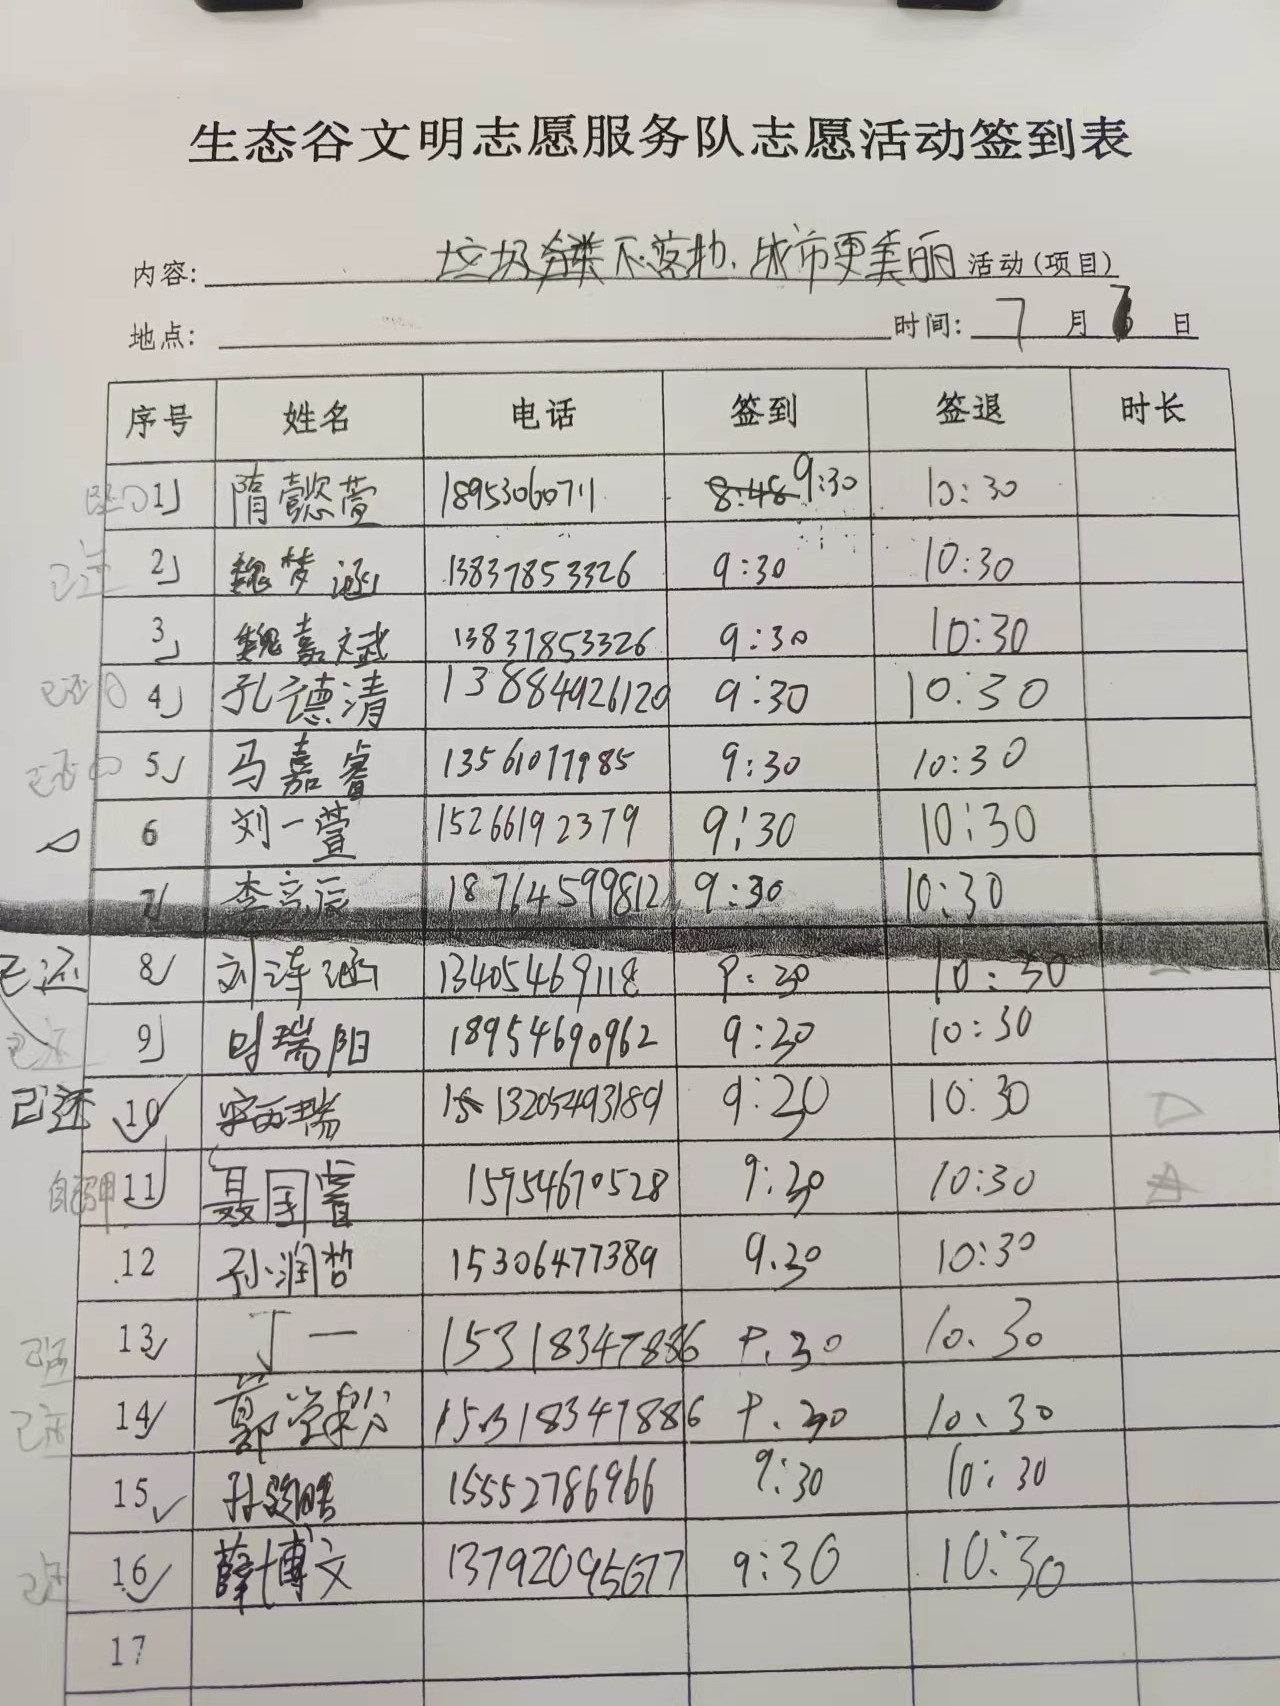 生态谷文明志愿服务队志愿活动签到表
内容: 垃圾分类不费劲、城市更美丽 活动(项目)
地点: 时间: 7月 日
序号 姓名 电话 签到 签退 时长
1 隋懿萱 18953060711 8:48 9:30 10:30
已还 2 魏梦涵 13837853326 9:30 10:30
3 魏嘉斌 13837853326 9:30 10:30
已还 4 孔德清 13884926120 9:30 10:30
已还 5 马嘉睿 13561077985 9:30 10:30
6 刘一萱 15266192379 9:30 10:30
7 李京辰 18764599812 9:30 10:30
已还 8 刘泽涵 13405469118 9:30 10:30
已还 9 时瑞阳 18954690962 9:30 10:30
已还 10 瑞 13205493189 9:20 10:30
11 聂国睿 15954670528 9:30 10:30
12 孙润哲 15306477389 9.30 10:30
已还 13 丁一 15318347886 9.30 10.30
已还 14 郭学粉 15318347886 9.30 10.30
15 孙 皓 15552786966 9:30 10:30
已还 16 薛博文 13792095677 9:30 10:30
17